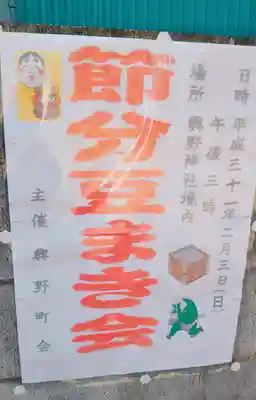 日時 平成三十一年二月三日(日)
午後三時
場所 興野神社境内
節分豆まき会
主催 興野町会